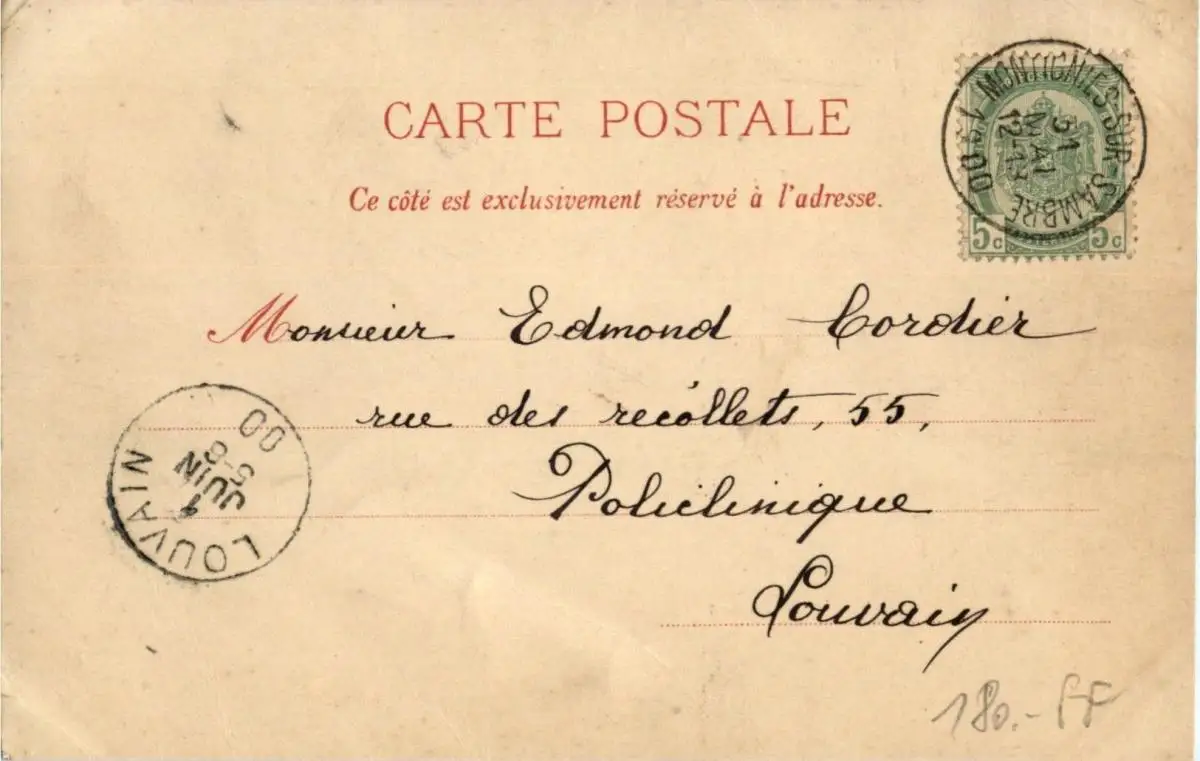 CARTE POSTALE
Ce côté est exclusivement réservé à l'adresse.
MONTIGNIES-SUR-SAMBRE
31
MAI
1900
5c 5c
Monsieur Edmond Cordier
rue des recollets, 55,
Policlinique
Louvain
LOUVAIN
1
JUIN
5-6
00
180.- FF